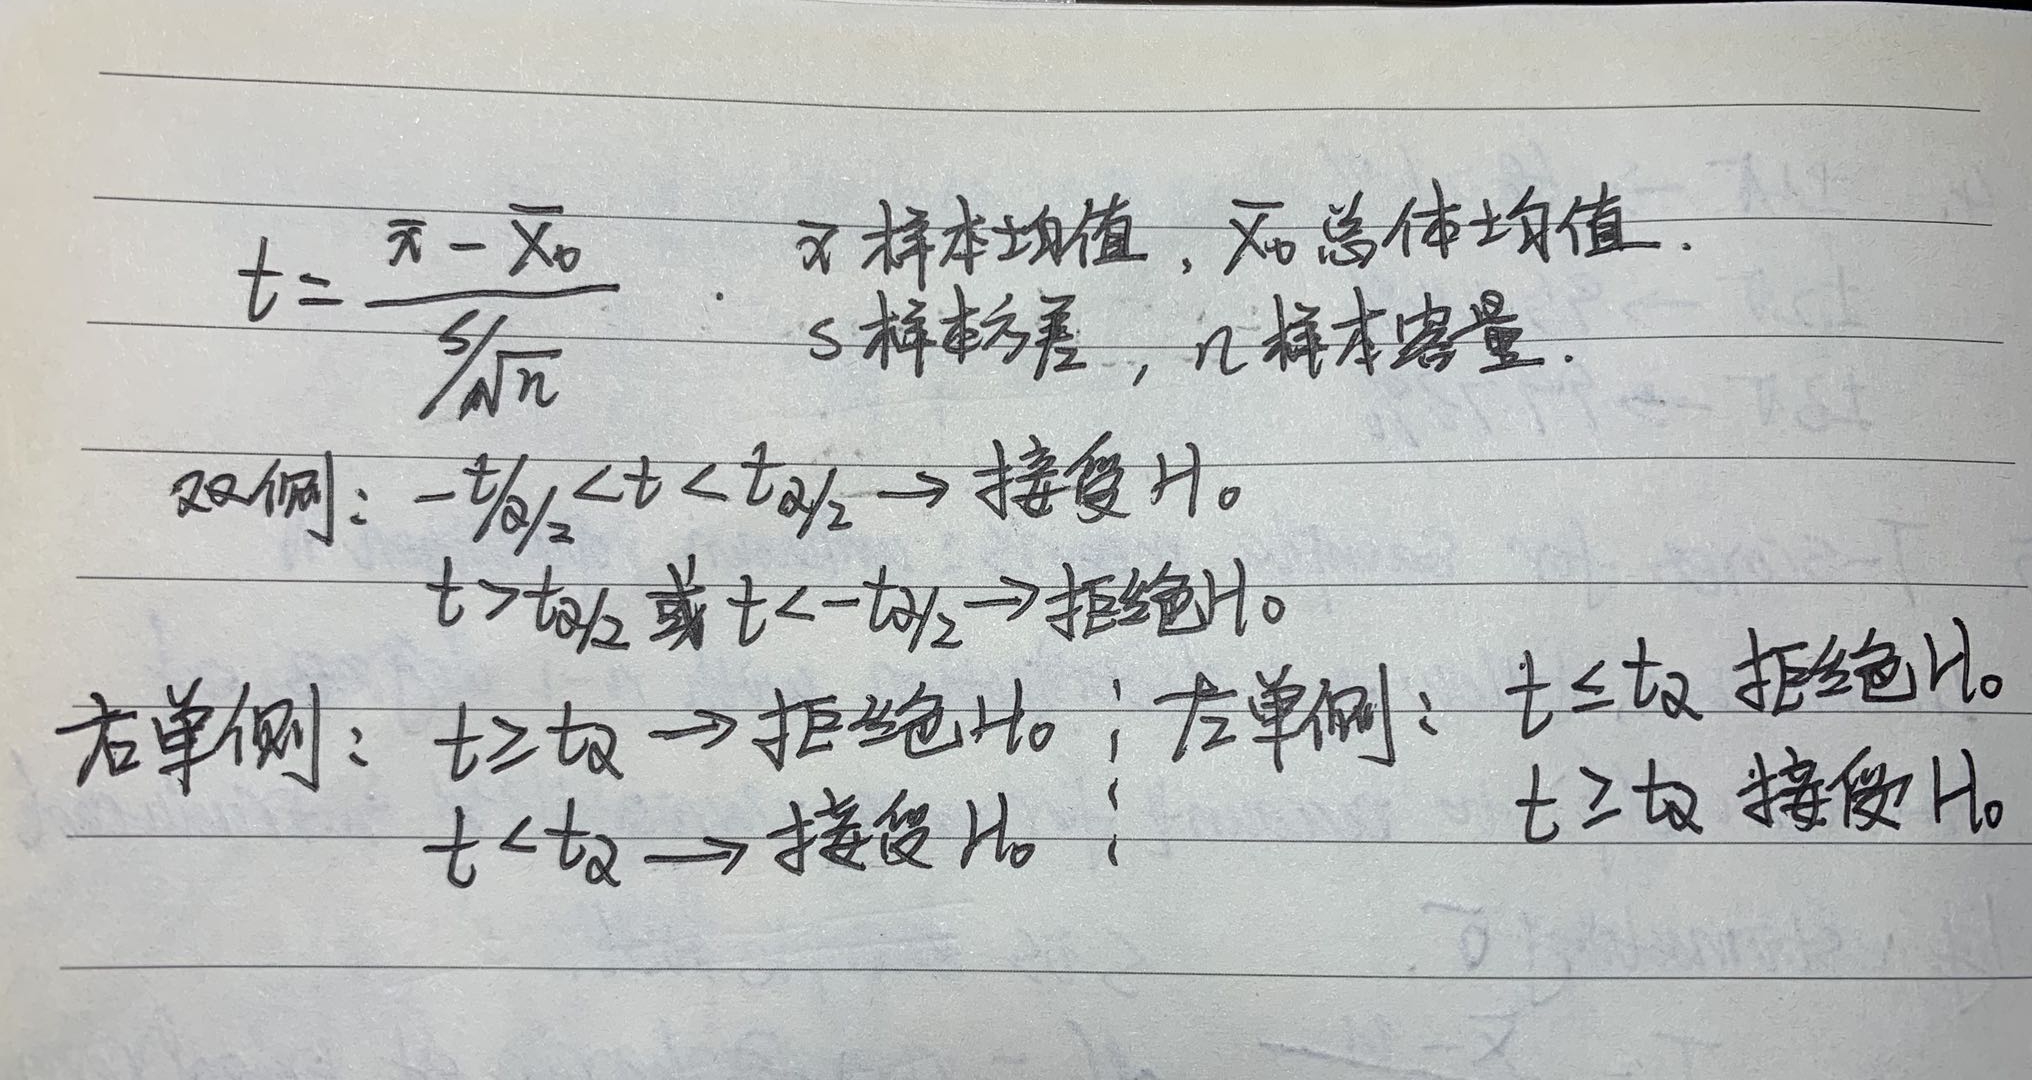 t = (x̄ - X̄₀) / (s/√n) . x̄ 样本均值, X̄₀ 总体均值.
s 样本方差, n 样本容量.
双侧: -t/α/2 < t < tα/2 → 接受 H₀
t > tα/2 或 t < -tα/2 → 拒绝 H₀
右单侧: t ≥ tα → 拒绝 H₀ ; 左单侧: t ≤ tα 拒绝 H₀
t < tα → 接受 H₀ ; t ≥ tα 接受 H₀